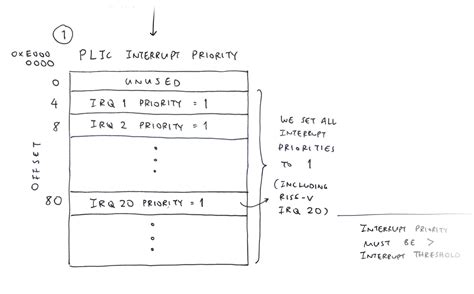 1
PLIC INTERRUPT PRIORITY
0xE000
0000
0
UNUSED
4
IRQ 1 PRIORITY = 1
8
IRQ 2 PRIORITY = 1
OFFSET
80
IRQ 20 PRIORITY = 1
WE SET ALL
INTERRUPT
PRIORITIES
TO 1
(INCLUDING
RISC-V
IRQ 20)
INTERRUPT PRIORITY
MUST BE >
INTERRUPT THRESHOLD